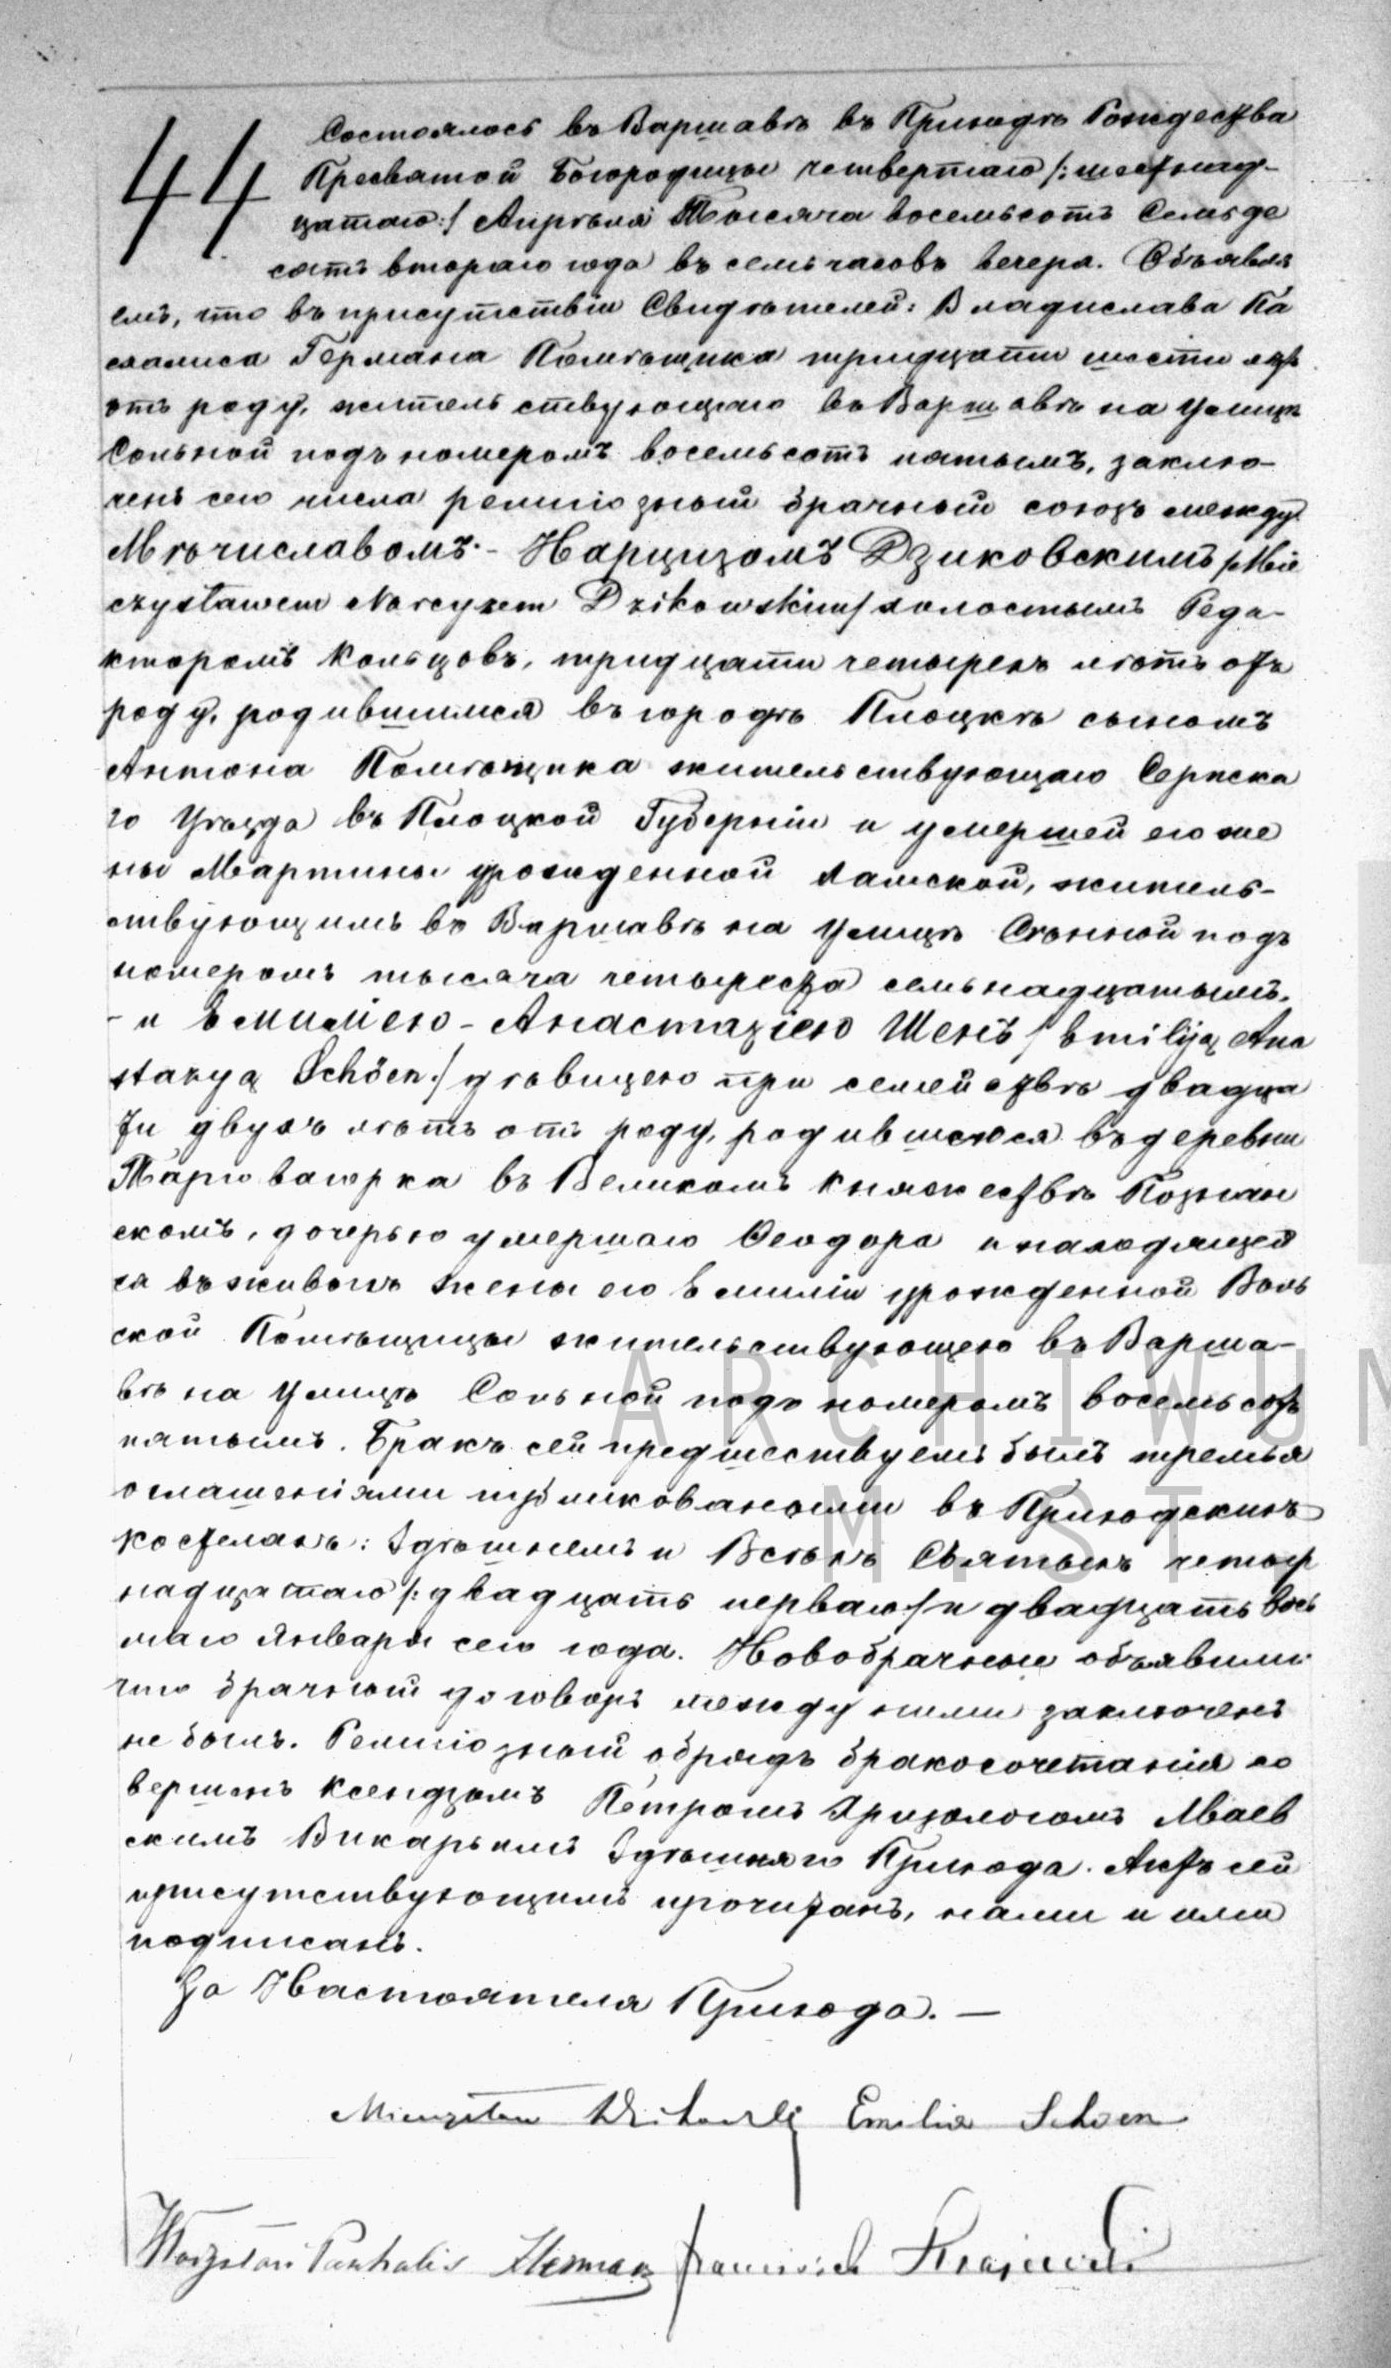 44
Состоялось въ Варшавѣ въ Приходѣ Рождества
Пресвятой Богородицы четвертаго /:шестнад-
цатаго:/ Апрѣля Тысяча восемьсотъ Семьде
сятъ втораго года въ семь часовъ вечера. Объявля
емъ, что въ присутствіи Свидѣтелей: Владислава Па
схалиса Германа Помѣщика тридцати шести лѣтъ
отъ роду, жительствующаго въ Варшавѣ на улицѣ
Сольной подъ номеромъ восемьсотъ пятымъ, заклю-
ченъ сего числа религіозный брачный союзъ между
Мѣчиславомъ - Нарцизомъ Дзиковскимъ /Mie
czysławem Narcyzem Dzikowskim/ холостымъ Реда-
кторомъ Кольцовъ, тридцати четырехъ лѣтъ отъ
роду, родившимся въ городѣ Плоцкѣ сыномъ
Антона Помѣщика жительствующаго Серпска
го Уѣзда въ Плоцкой Губерніи и умершей его же
ны Мартины урожденной Ламской, житель-
ствующимъ въ Варшавѣ на улицѣ Сѣнной подъ
номеромъ тысяча четыреста семьнадцатымъ.
- и Емиліею - Анастазіею Шенъ /Emiliją Ana
stazyą Schöen:/ дѣвицею при семействѣ двадца
ти двухъ лѣтъ отъ роду, родившеюся въ деревни
Тарговагорка въ Великомъ Княжествѣ Познан
скомъ, дочерью умершаго Ѳеодора и находящей
ся въ живыхъ жены его Емиліи урожденной Воль
ской Помѣщицы жительствующею въ Варша-
вѣ на улицѣ Сольной подъ номеромъ восемьсотъ
пятымъ. Бракъ сей предшествуемъ былъ тремья
оглашеніями публикованными въ Приходскихъ
Костелахъ: Здѣшнемъ и Всѣхъ Святыхъ четыр
надцатаго /:двадцать перваго/ и двадцать вось
маго Января сего года. Новобрачные объявили
что брачный договоръ между ними заключенъ
не былъ. Религіозный обрядъ бракосочетанія со
вершенъ Ксендзомъ Петромъ Хризологомъ Маев
скимъ Викарьимъ Здѣшняго Прихода. Актъ сей
присутствующимъ прочитанъ, нами и ими
подписанъ.
За Настоятеля Прихода. —
Mieczysław Dzikowski Emilia Schoen
Władysław Paschalis Herman Franciszek
ARCHIWUM
M.ST